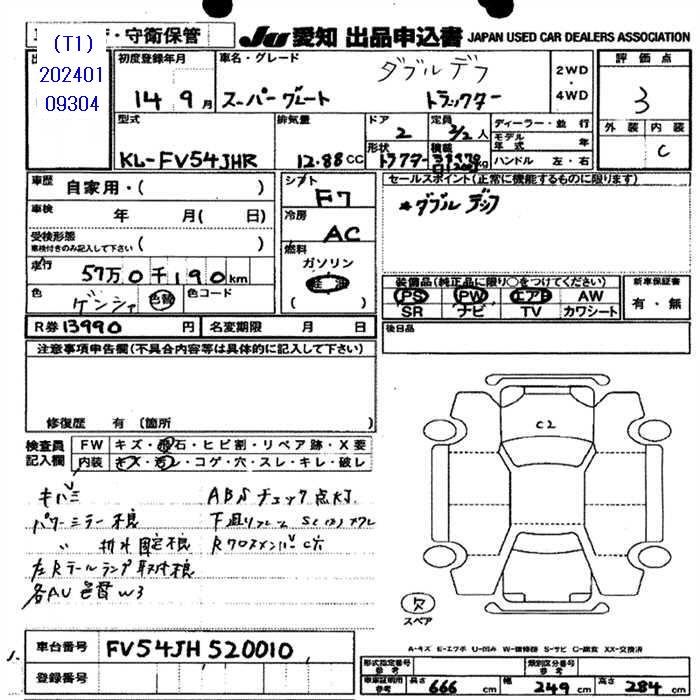 ・守衛保管
JU 愛知 出品申込書 JAPAN USED CAR DEALERS ASSOCIATION
(T1)
202401
09304
初度登録年月
14年9月
車名・グレード
スーパーグレート
ダブルデフ
トラクター
2WD
・
4WD
評価点
3
外装 内装
C
型式
KL-FV54JHR
排気量
12.88CC
ドア
2
定員
2/2人
形状
トラクター
積載
kg
ディーラー・並行
モデル年式 年
ハンドル 左・右
車歴 自家用・( )
車検 年 月( 日)
受検形態
車検付きのみ記入して下さい ( )
走行 57万0千190km
色 ゲンシャ 色替 色コード
シフト
F7
冷房
AC
燃料
ガソリン
軽油
( )
セールスポイント(正常に機能するものに限ります)
*ダブルデフ
装備品(純正品に限り○をつけてください)
PS PW エアB AW
SR ナビ TV カワシート
新車保証書
有・無
R券 13990円 名変期限 月 日
後日品
注意事項申告欄(不具合内容等は具体的に記入して下さい)
修復歴 有(箇所
検査員
記入欄
FW キズ・飛石・ヒビ割・リペア跡・X要
内装 キズ・汚レ・コゲ・穴・スレ・キレ・破レ
キバミ
パワーミラー不良
〃 排水固定不良
左Rテールランプ取付不良
各AU色替W3
ABSチェック点灯
下廻りフレーム
RクロスメンバーC穴
C2
欠
スペア
車台番号 FV54JH520010
登録番号
A-キズ E-エクボ U-凹み W-補修跡 S-サビ C-腐食 XX-交換済
形式指定番号
参考
類別区分番号
参考
車庫証明用
参考
長さ 666cm 幅 249cm 高さ 284cm